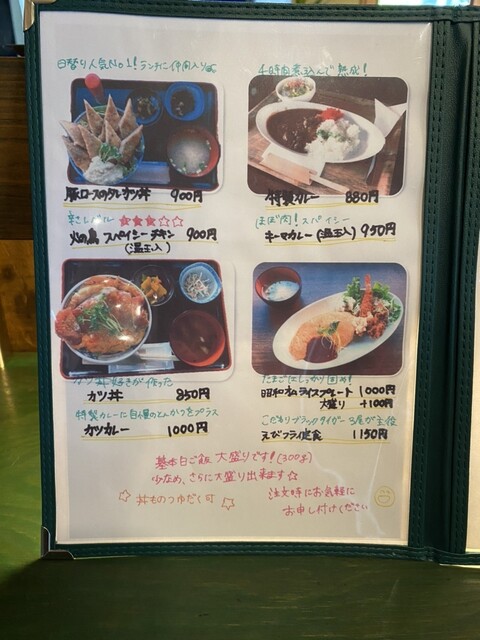 日替り人気No1! ランチに仲間入り
豚ロースのタレカツ丼 900円
辛さレベル ★★★☆☆
火の鳥 スパイシーチキン 900円
(温玉入)
カツ丼好きが作った
カツ丼 850円
特製カレーに自慢のとんかつをプラス
カツカレー 1000円
4時間煮込んで熟成!
特製カレー 880円
ほぼ肉! スパイシー
キーマカレー (温玉入) 950円
たまごはしっかり固め!
昭和オムライスプレート 1000円
大盛り +100円
こだわりブラックタイガー 3尾が主役
えびフライ定食 1150円
基本白ご飯 大盛りです!(300g)
少なめ、さらに大盛り出来ます☆
☆ 丼ものつゆだく可 ☆
注文時にお気軽に
お申し付けください